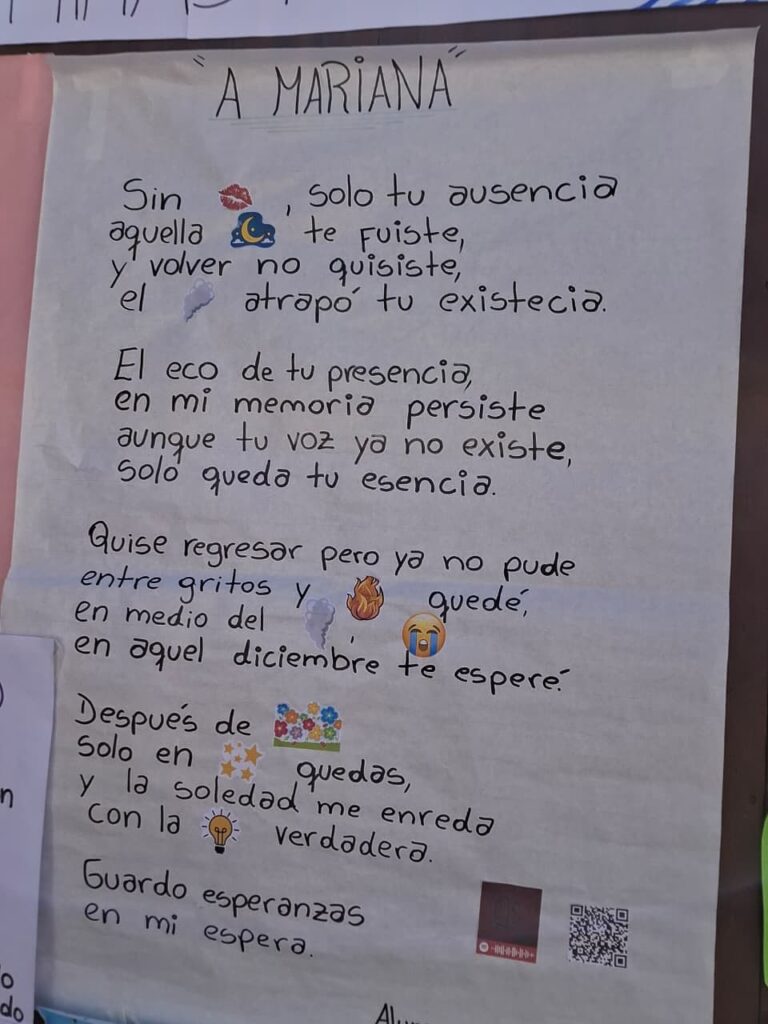 "A MARIANA"
Sin 💋, solo tu ausencia
aquella 🌙 te fuiste,
y volver no quisiste,
el 💨 atrapó tu existecia.
El eco de tu presencia,
en mi memoria persiste
aunque tu voz ya no existe,
solo queda tu esencia.
Quise regresar pero ya no pude
entre gritos y 🔥 quedé,
en medio del 💨, 😭
en aquel diciembre te esperé.
Después de 🌼
solo en ✨ quedas,
y la soledad me enreda
con la 💡 verdadera.
Guardo esperanzas
en mi espera.